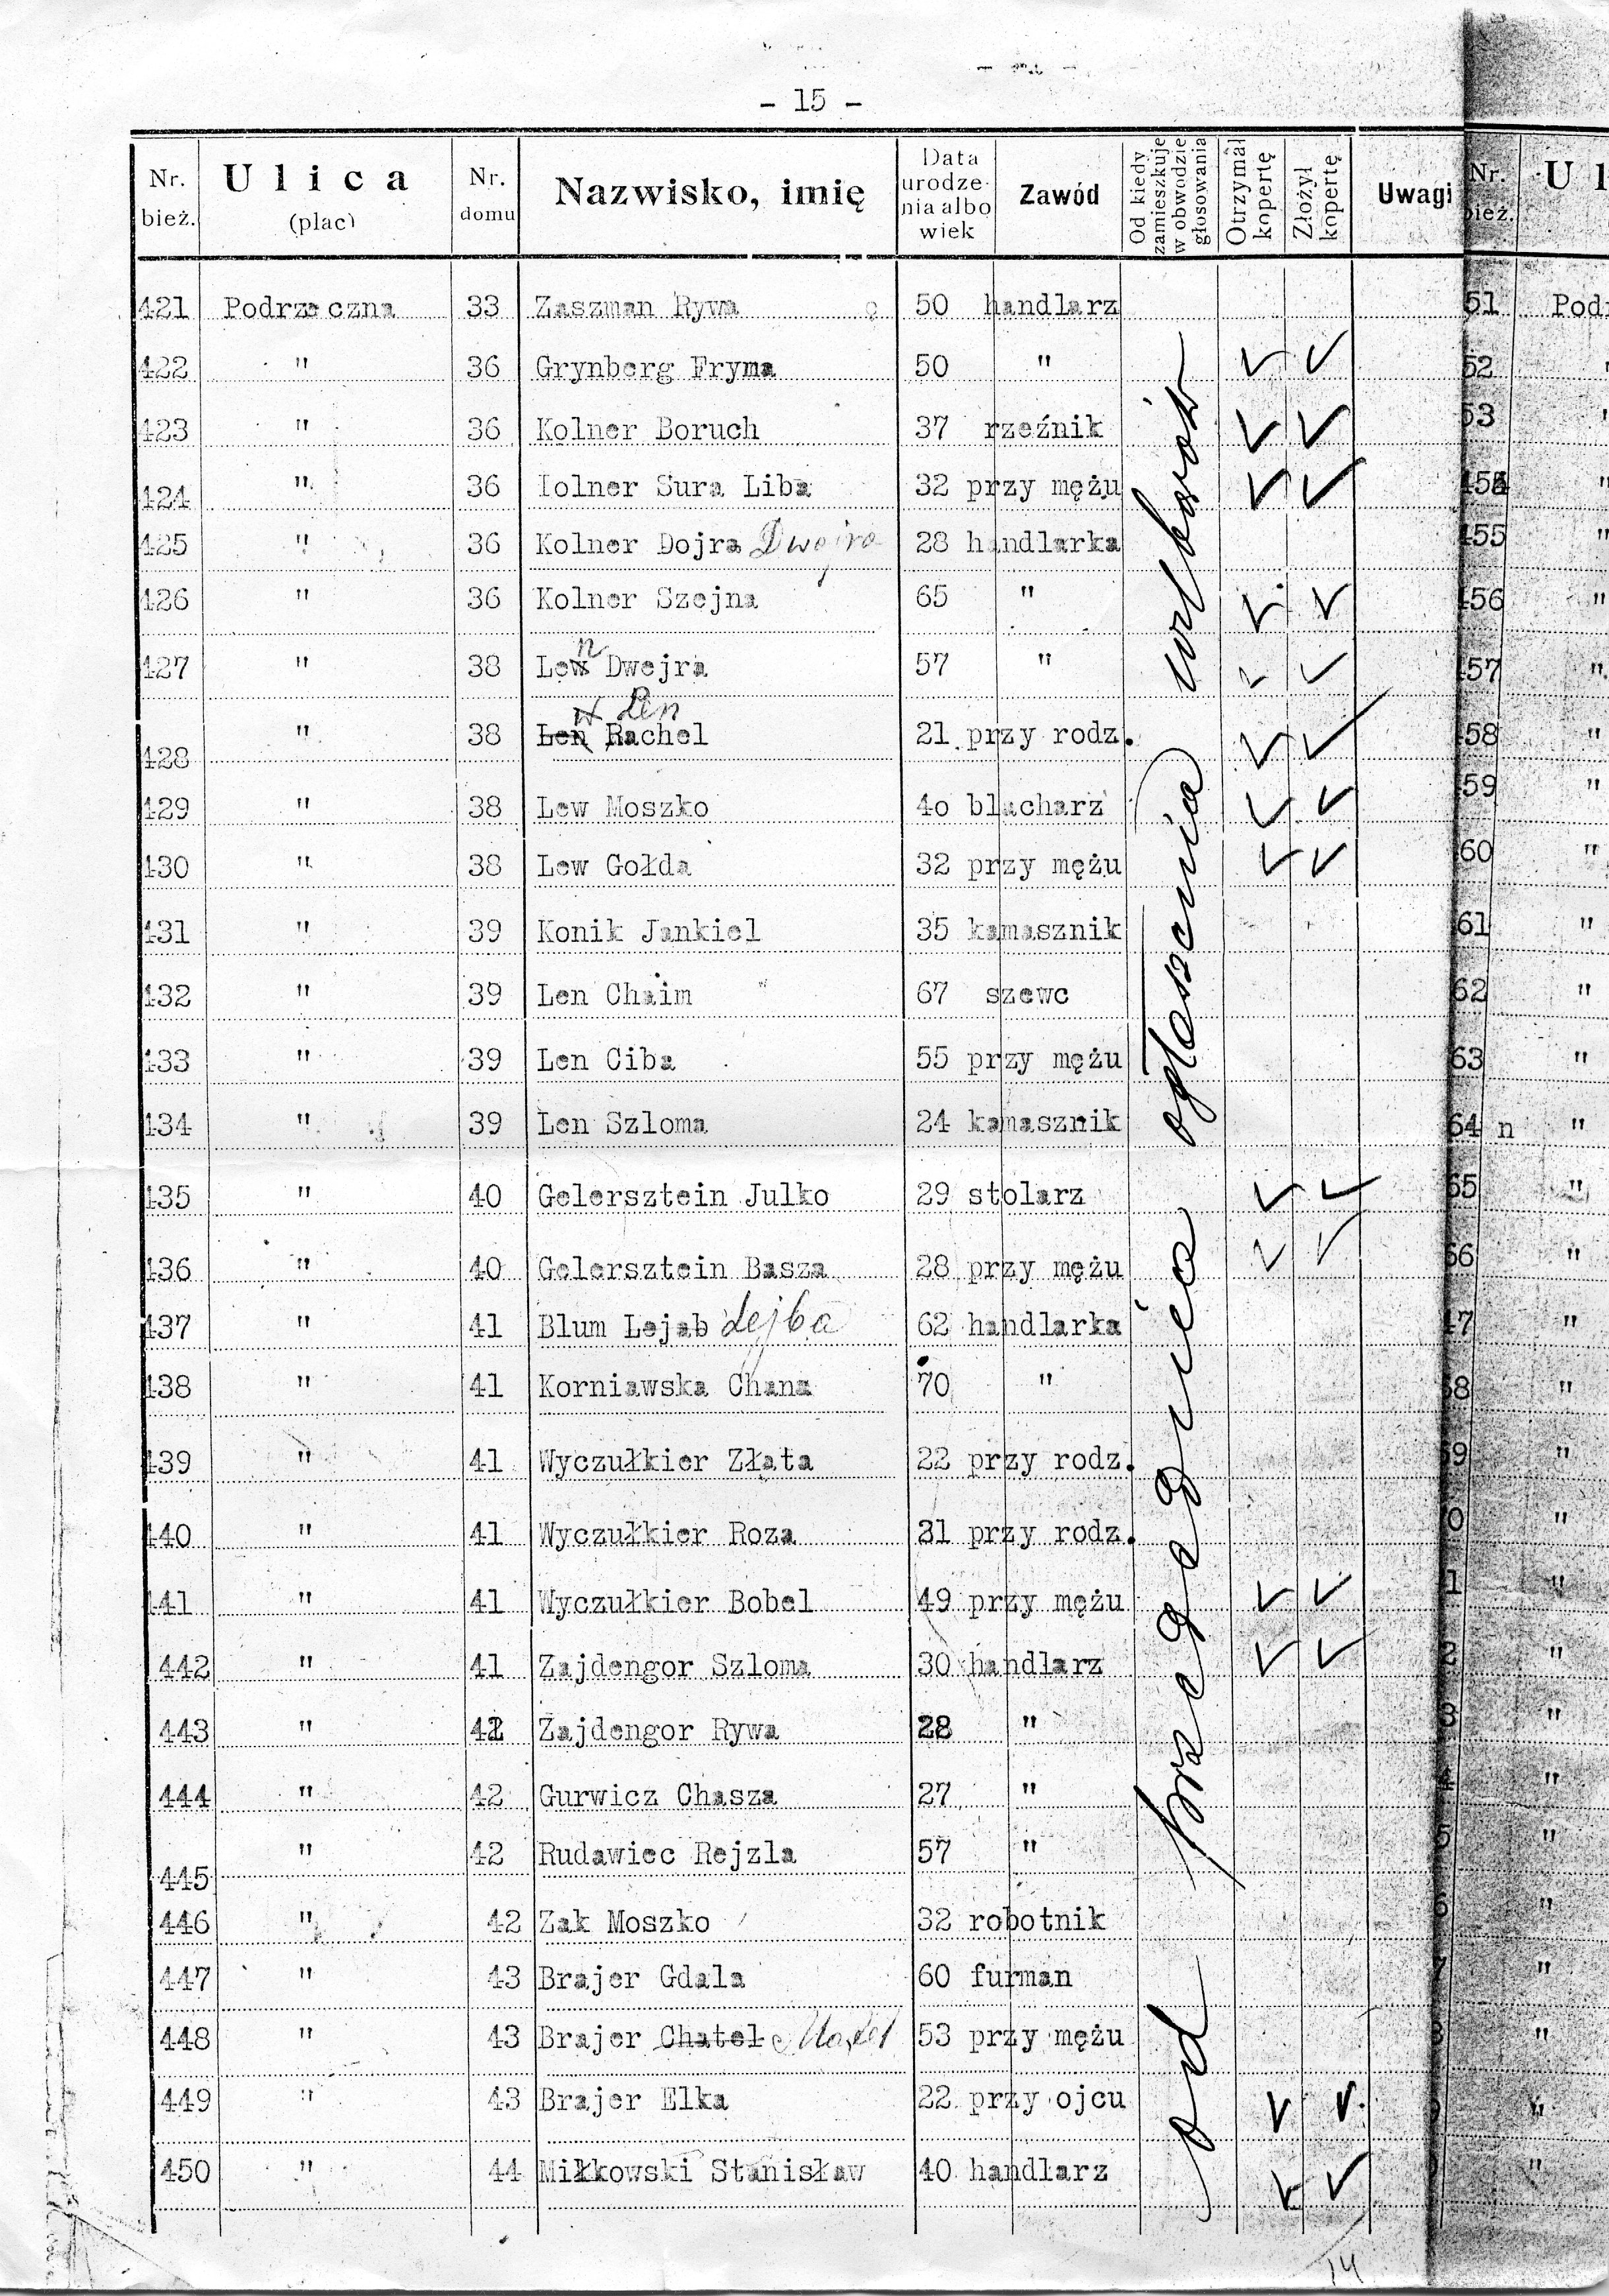 - 15 -
Nr. bież. Ulica (plac) Nr. domu Nazwisko, imię Data urodzenia albo wiek Zawód Od kiedy zamieszkuje w obwodzie głosowania Otrzymał kopertę Złożył kopertę Uwagi Nr. bież. Ul
421 Podrzeczna 33 Zaszman Rywa 50 handlarz 51 Podr
422 " 36 Grynberg Fryma 50 " ✓ ✓ 52 "
423 " 36 Kolner Boruch 37 rzeźnik ✓ ✓ 53 "
424 " 36 Iolner Sura Liba 32 przy mężu ✓ ✓ 454 "
425 " 36 Kolner Dojra Dwojra 28 handlarka 455 "
426 " 36 Kolner Szejna 65 " ✓ ✓ 456 "
427 " 38 Lew n Dwejra 57 " ✓ ✓ 457 "
428 " 38 Len w Len Rachel 21 przy rodz. ✓ ✓ 458 "
429 " 38 Lew Moszko 4o blacharz ✓ ✓ 459 "
430 " 38 Lew Gołda 32 przy mężu ✓ ✓ 60 "
431 " 39 Konik Jankiel 35 kamasznik 61 "
432 " 39 Len Chaim 67 szewc 62 "
433 " 39 Len Ciba 55 przy mężu 63 "
434 " 39 Len Szloma 24 kamasznik 64 n "
435 " 40 Gelersztein Julko 29 stolarz ✓ ✓ 65 "
436 " 40 Gelersztein Basza 28 przy mężu ✓ ✓ 66 "
437 " 41 Blum Lejab Lejba 62 handlarka 47 "
438 " 41 Korniawska Chana 70 " 68 "
439 " 41 Wyczułkier Złata 22 przy rodz. 69 "
440 " 41 Wyczułkier Roza 21 przy rodz. 0 "
441 " 41 Wyczułkier Bobel 49 przy mężu ✓ ✓ 1 "
442 " 41 Zajdengor Szloma 30 handlarz ✓ ✓ 2 "
443 " 42 Zajdengor Rywa 28 " 3 "
444 " 42 Gurwicz Chasza 27 " "
445 " 42 Rudawiec Rejzla 57 " 5 "
446 " 42 Zak Moszko 32 robotnik 6 "
447 " 43 Brajer Gdala 60 furman 7 "
448 " 43 Brajer Chatel 53 przy mężu "
449 " 43 Brajer Elka 22 przy ojcu ✓ ✓ "
450 " 44 Miłkowski Stanisław 40 handlarz ✓ ✓ "
od przeszło ogłoszenia wyborów
14